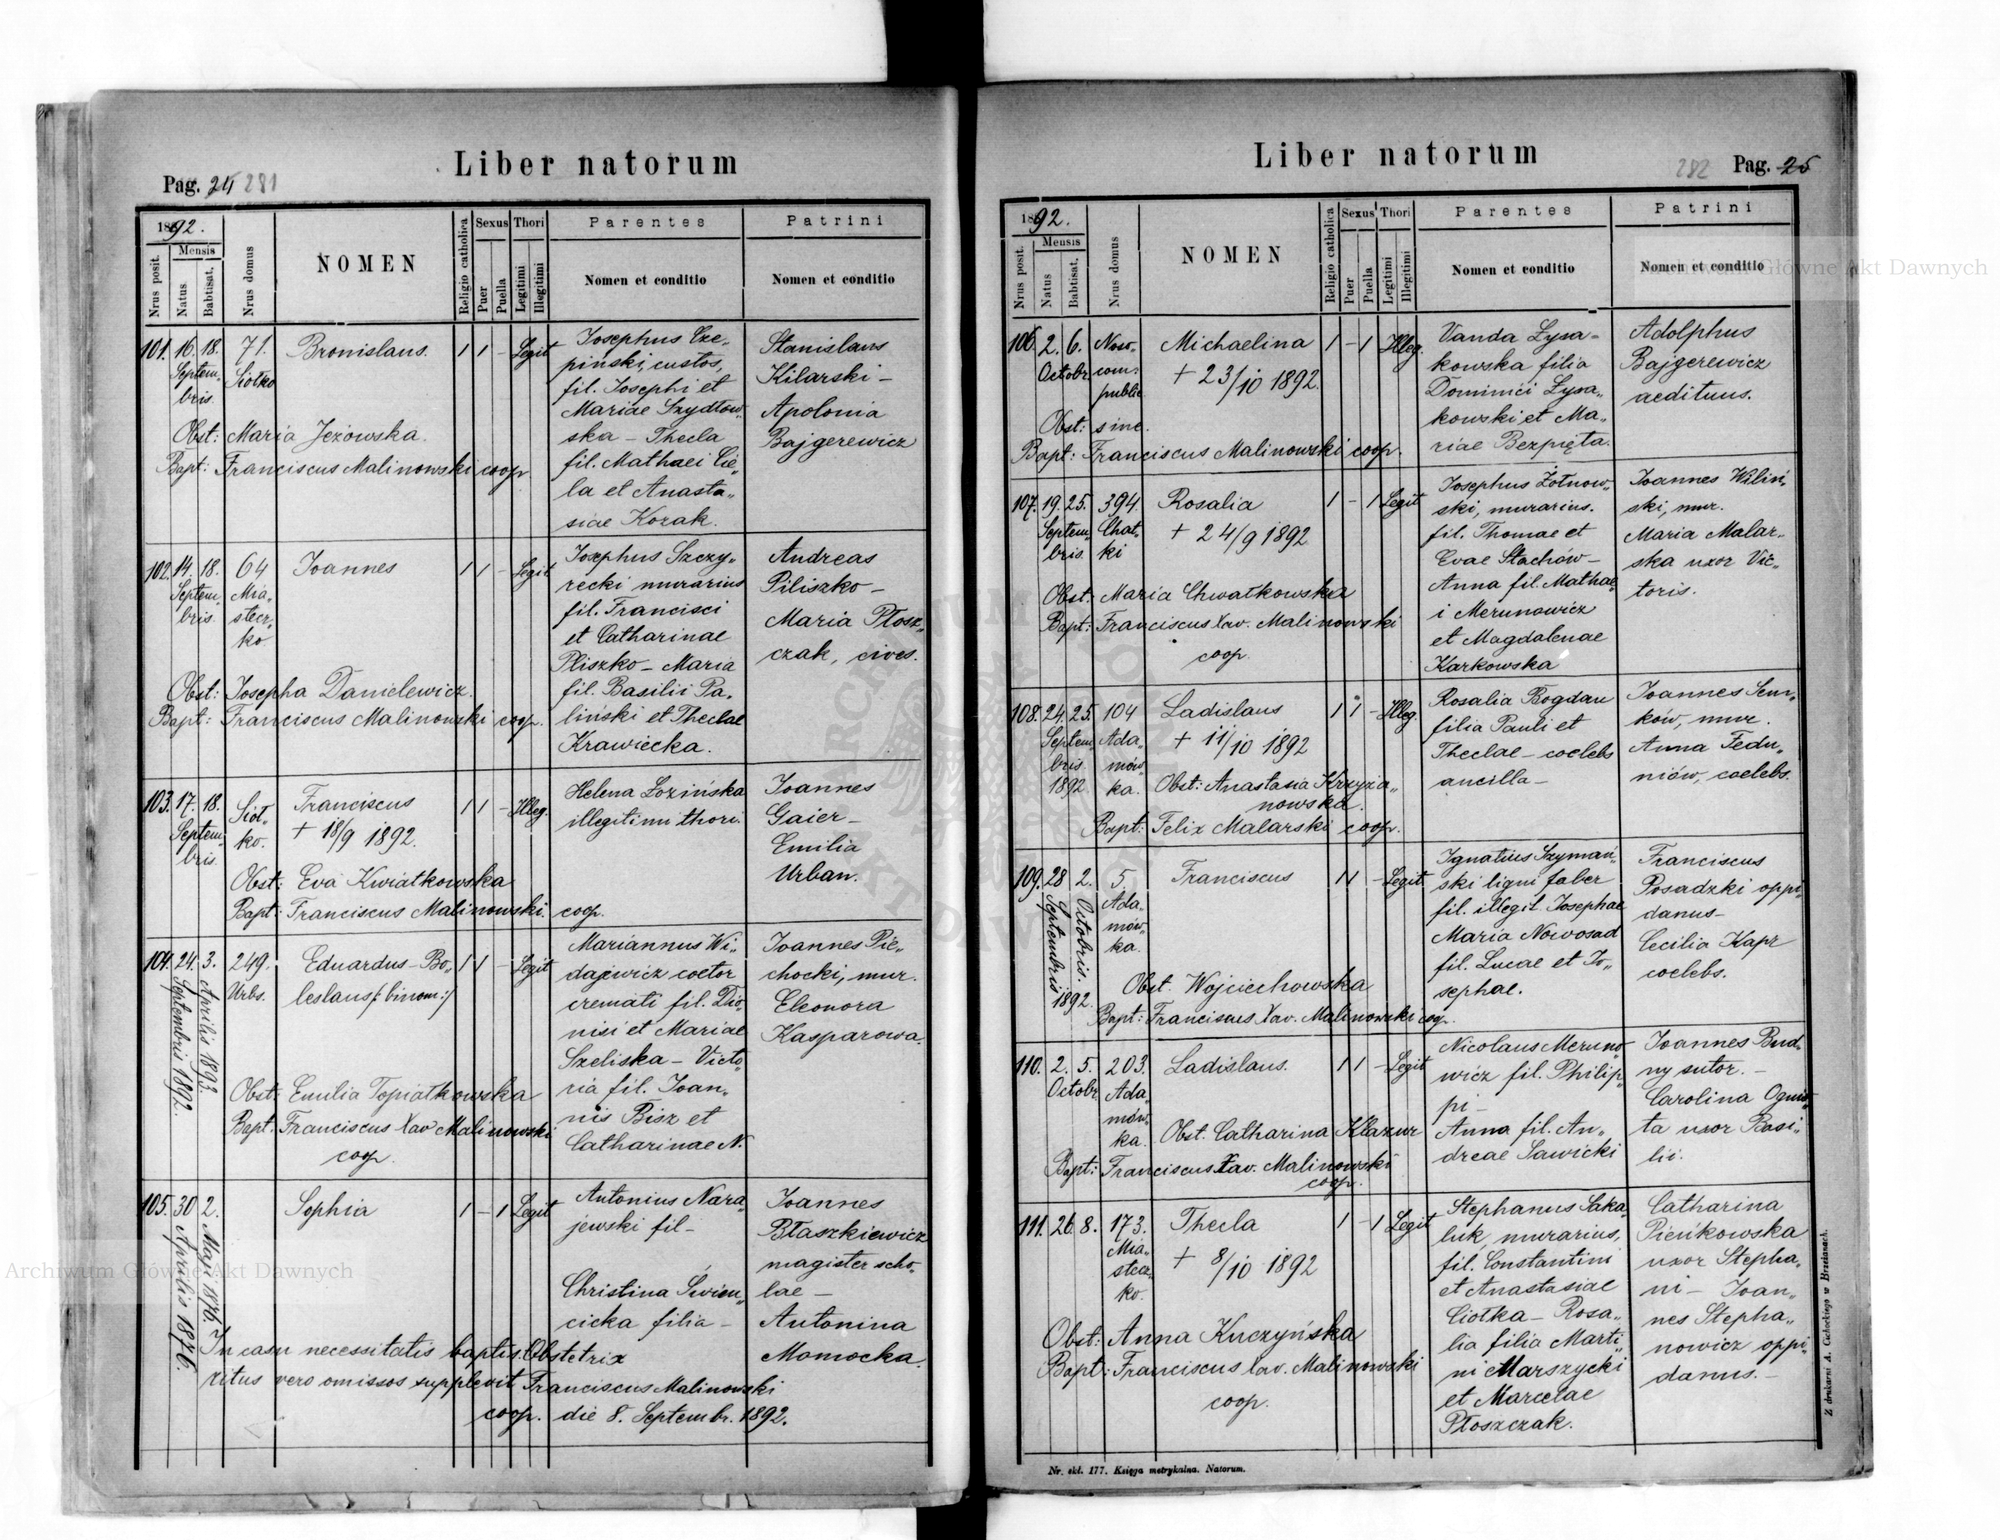 Liber natorum
Pag. 24 281
1892.
Nrus posit.
Mensis
Natus.
Babtisat.
Nrus domus
NOMEN
Religio catholica
Sexus
Puer
Puella
Thori
Legitimi
Illegitimi
Parentes
Nomen et conditio
Patrini
Nomen et conditio
101. 16. 18. Septembris. 71. Siołko
Bronislaus. 1 1 - Legit
Josephus Cze-
piński, custos,
fil. Josephi et
Mariae Szydłow-
ska – Thecla
fil. Mathaei Cie-
la et Anasta-
siae Kozak.
Stanislaus
Kilarski –
Apolonia
Bajgerewicz
Obst: Maria Jeżowska.
Bapt: Franciscus Malinowski coop.
102. 14. 18. Septembris. 64 Miasteczko
Joannes 1 1 - Legit
Josephus Szczy-
recki murarius
fil. Francisci
et Catharinae
Pliszko – Maria
fil. Basilii Pa-
liński et Theclae
Krawiecka.
Andreas
Piliszko –
Maria Płosz-
czak, cives.
Obst: Josepha Danielewicz.
Bapt: Franciscus Malinowski coop.
103. 17. 18. Septembris. Siołko.
Franciscus 1 1 - Illeg.
+ 18/9 1892.
Helena Łozińska
illegitimi thori.
Joannes
Gaier –
Emilia
Urban.
Obst: Eva Kwiatkowska
Bapt: Franciscus Malinowski. coop.
104. 24. Septembris 1892. 3. Aprilis 1893. 249. Urbs.
Eduardus – Bo- 1 1 - Legit
leslaus /: binom :/
Mariannus Wi-
dajewicz coctor
cremati fil. Dio-
nisi et Mariae
Szeliska – Victo-
ria fil. Joan-
nis Bisz et
Catharinae N.
Joannes Pie-
chocki, mur.
Eleonora
Kasparowa.
Obst: Emilia Topiatkowska
Bapt. Franciscus Xav Malinowski
coop.
105. 30 Aprilis 1876. 2. Maji 1876.
Sophia 1 - 1 Legit
Antonius Nara-
jewski fil –
Christina Świen-
cicka filia –
Joannes
Błaszkiewicz
magister scho-
lae –
Antonina
Momocka.
In casu necessitatis baptis. Obstetrix
ritus vero omissos supplevit Franciscus Malinowski
coop. die 8. Septembr. 1892.
Liber natorum
282 Pag. 25
1892.
Nrus posit.
Mensis
Natus.
Babtisat.
Nrus domus
NOMEN
Religio catholica
Sexus
Puer
Puella
Thori
Legitimi
Illegitimi
Parentes
Nomen et conditio
Patrini
Nomen et conditio
106. 2. 6. Octobr. Now- com. public
Michaelina 1 - 1 Illeg.
+ 23/10 1892.
Vanda Łysa-
kowska filia
Dominici Łysa-
kowski et Ma-
riae Bezpięta.
Adolphus
Bajgerewicz
aedituus.
Obst: sine.
Bapt: Franciscus Malinowski coop.
107. 19. 25. Septembris. 394. Chatki
Rosalia 1 - 1 Legit
+ 24/9 1892
Josephus Żołnow-
ski, murarius.
fil. Thomae et
Evae Stachów –
Anna fil. Mathae-
i Merunowicz
et Magdalenae
Karkowska
Joannes Wiliń-
ski, mur.
Maria Malar-
ska uxor Vic-
toris.
Obst: Maria Chwatkowska
Bapt: Franciscus Xav. Malinowski
coop.
108. 24. 25. Septembris 1892. 104 Adamówka.
Ladislaus 1 1 - Illeg.
+ 11/10 1892
Rosalia Bogdan
filia Pauli et
Theclae – coelebs
ancilla –
Joannes Sem-
ków, mur.
Anna Fedu-
niów, coelebs.
Obst: Anastasia Krzyża-
nowska.
Bapt: Felix Malarski coop.
109. 28 Septembris 1892. 2. Octobris. 5. Adamówka.
Franciscus 1 1 - Legit
Ignatius Szymań-
ski ligni faber
fil. illegit. Josephae
Maria Nowosad
fil. Lucae et Jo-
sephae.
Franciscus
Posadzki oppi-
danus –
Cecilia Kapr
coelebs.
Obst. Wojciechowska
Bapt: Franciscus Xav. Malinowski coop.
110. 2. 5. Octobr. 203. Adamówka.
Ladislaus. 1 1 - Legit
Nicolaus Meruno-
wicz fil. Philip-
pi –
Anna fil. An-
dreae Sawicki
Joannes Bud-
ny sutor. –
Carolina Ogni-
ta uxor Basi-
lii.
Obst. Catharina Klazur
Bapt: Franciscus Xav. Malinowski
coop.
111. 26. 8. 173. Miasteczko.
Thecla 1 - 1 Legit
+ 8/10 1892
Stephanus Saka-
luk, murarius,
fil. Constantini
et Anastasiae
Ciołka – Rosa-
lia filia Marti-
ni Marszycki
et Marcelae
Płoszczak.
Catharina
Pieńkowska
uxor Stepha-
ni – Joan-
nes Stepha-
nowicz oppi-
danus. –
Obst: Anna Kuczyńska
Bapt: Franciscus Xav. Malinowski
coop.
Nr. skł. 177. Księga metrykalna. Natorum.
Z drukarni A. Cichockiego w Brzeżanach.
Archiwum Główne Akt Dawnych
Główne Akt Dawnych